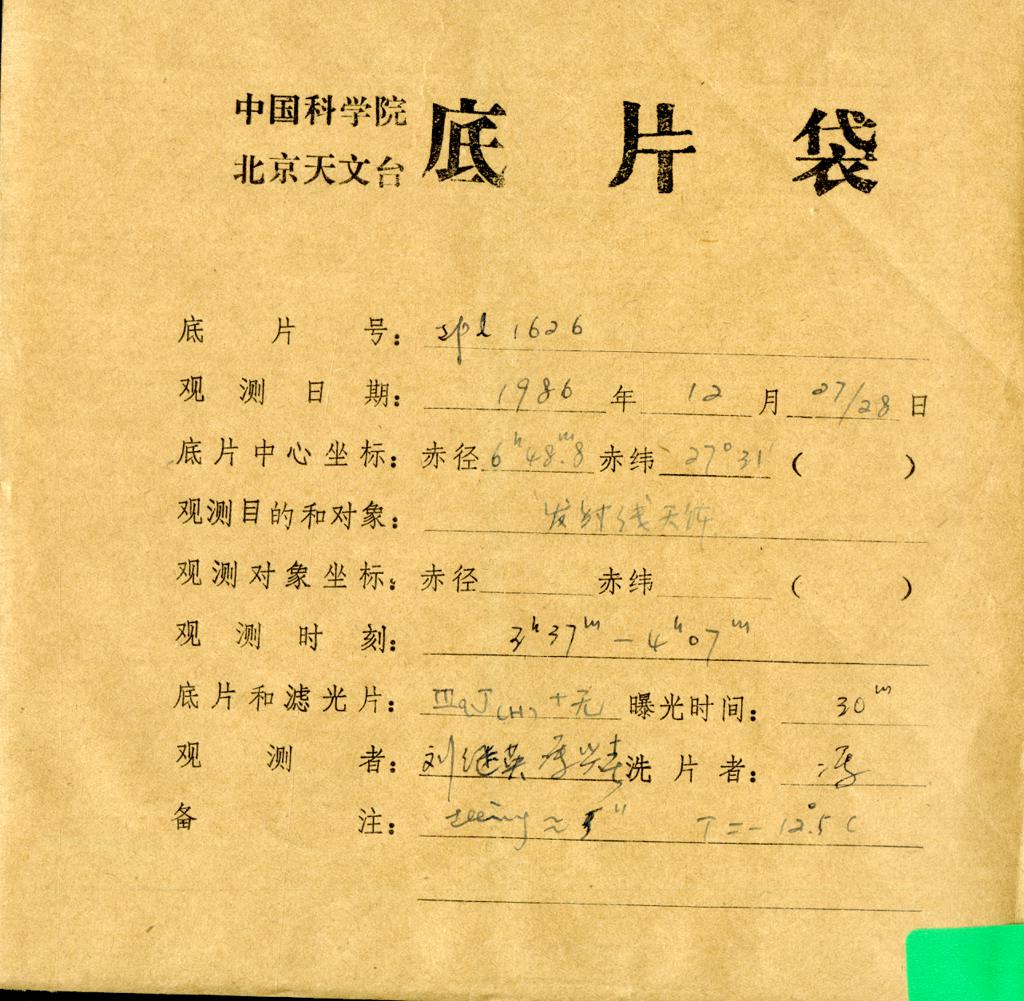 中国科学院
北京天文台 底片袋
底片号： spl 1626
观测日期： 1986 年 12 月 27/28 日
底片中心坐标： 赤径 6ʰ48ᵐ.8 赤纬 27°31 ( )
观测目的和对象： 发射线天体
观测对象坐标： 赤径 赤纬 ( )
观测时刻： 3ʰ37ᵐ — 4ʰ07ᵐ
底片和滤光片： ⅢaJ(H) + 无 曝光时间： 30ᵐ
观测者： 刘继英 洗片者：
备注： seeing ≈ 5" T = - 12.°5 C